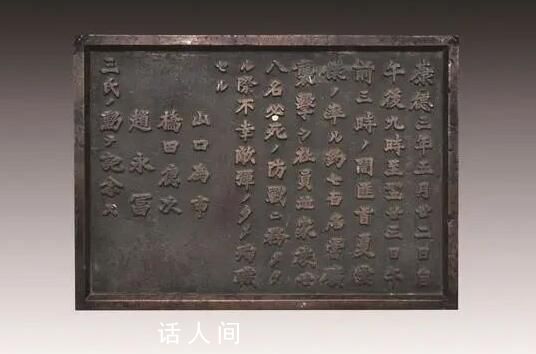 康德三年五月廿二日自
午後九時至翌廿三日午
前三時ノ間匪首夏雲
傑ノ率ル約七百名當礦
襲撃シ社員並家族七
八名必死ノ防戰ニ努メタ
ル際不幸敵彈ノタメ殉職
セル
山口為市
橋田德次
趙永富
三氏ノ勳ヲ記念ス
话人间